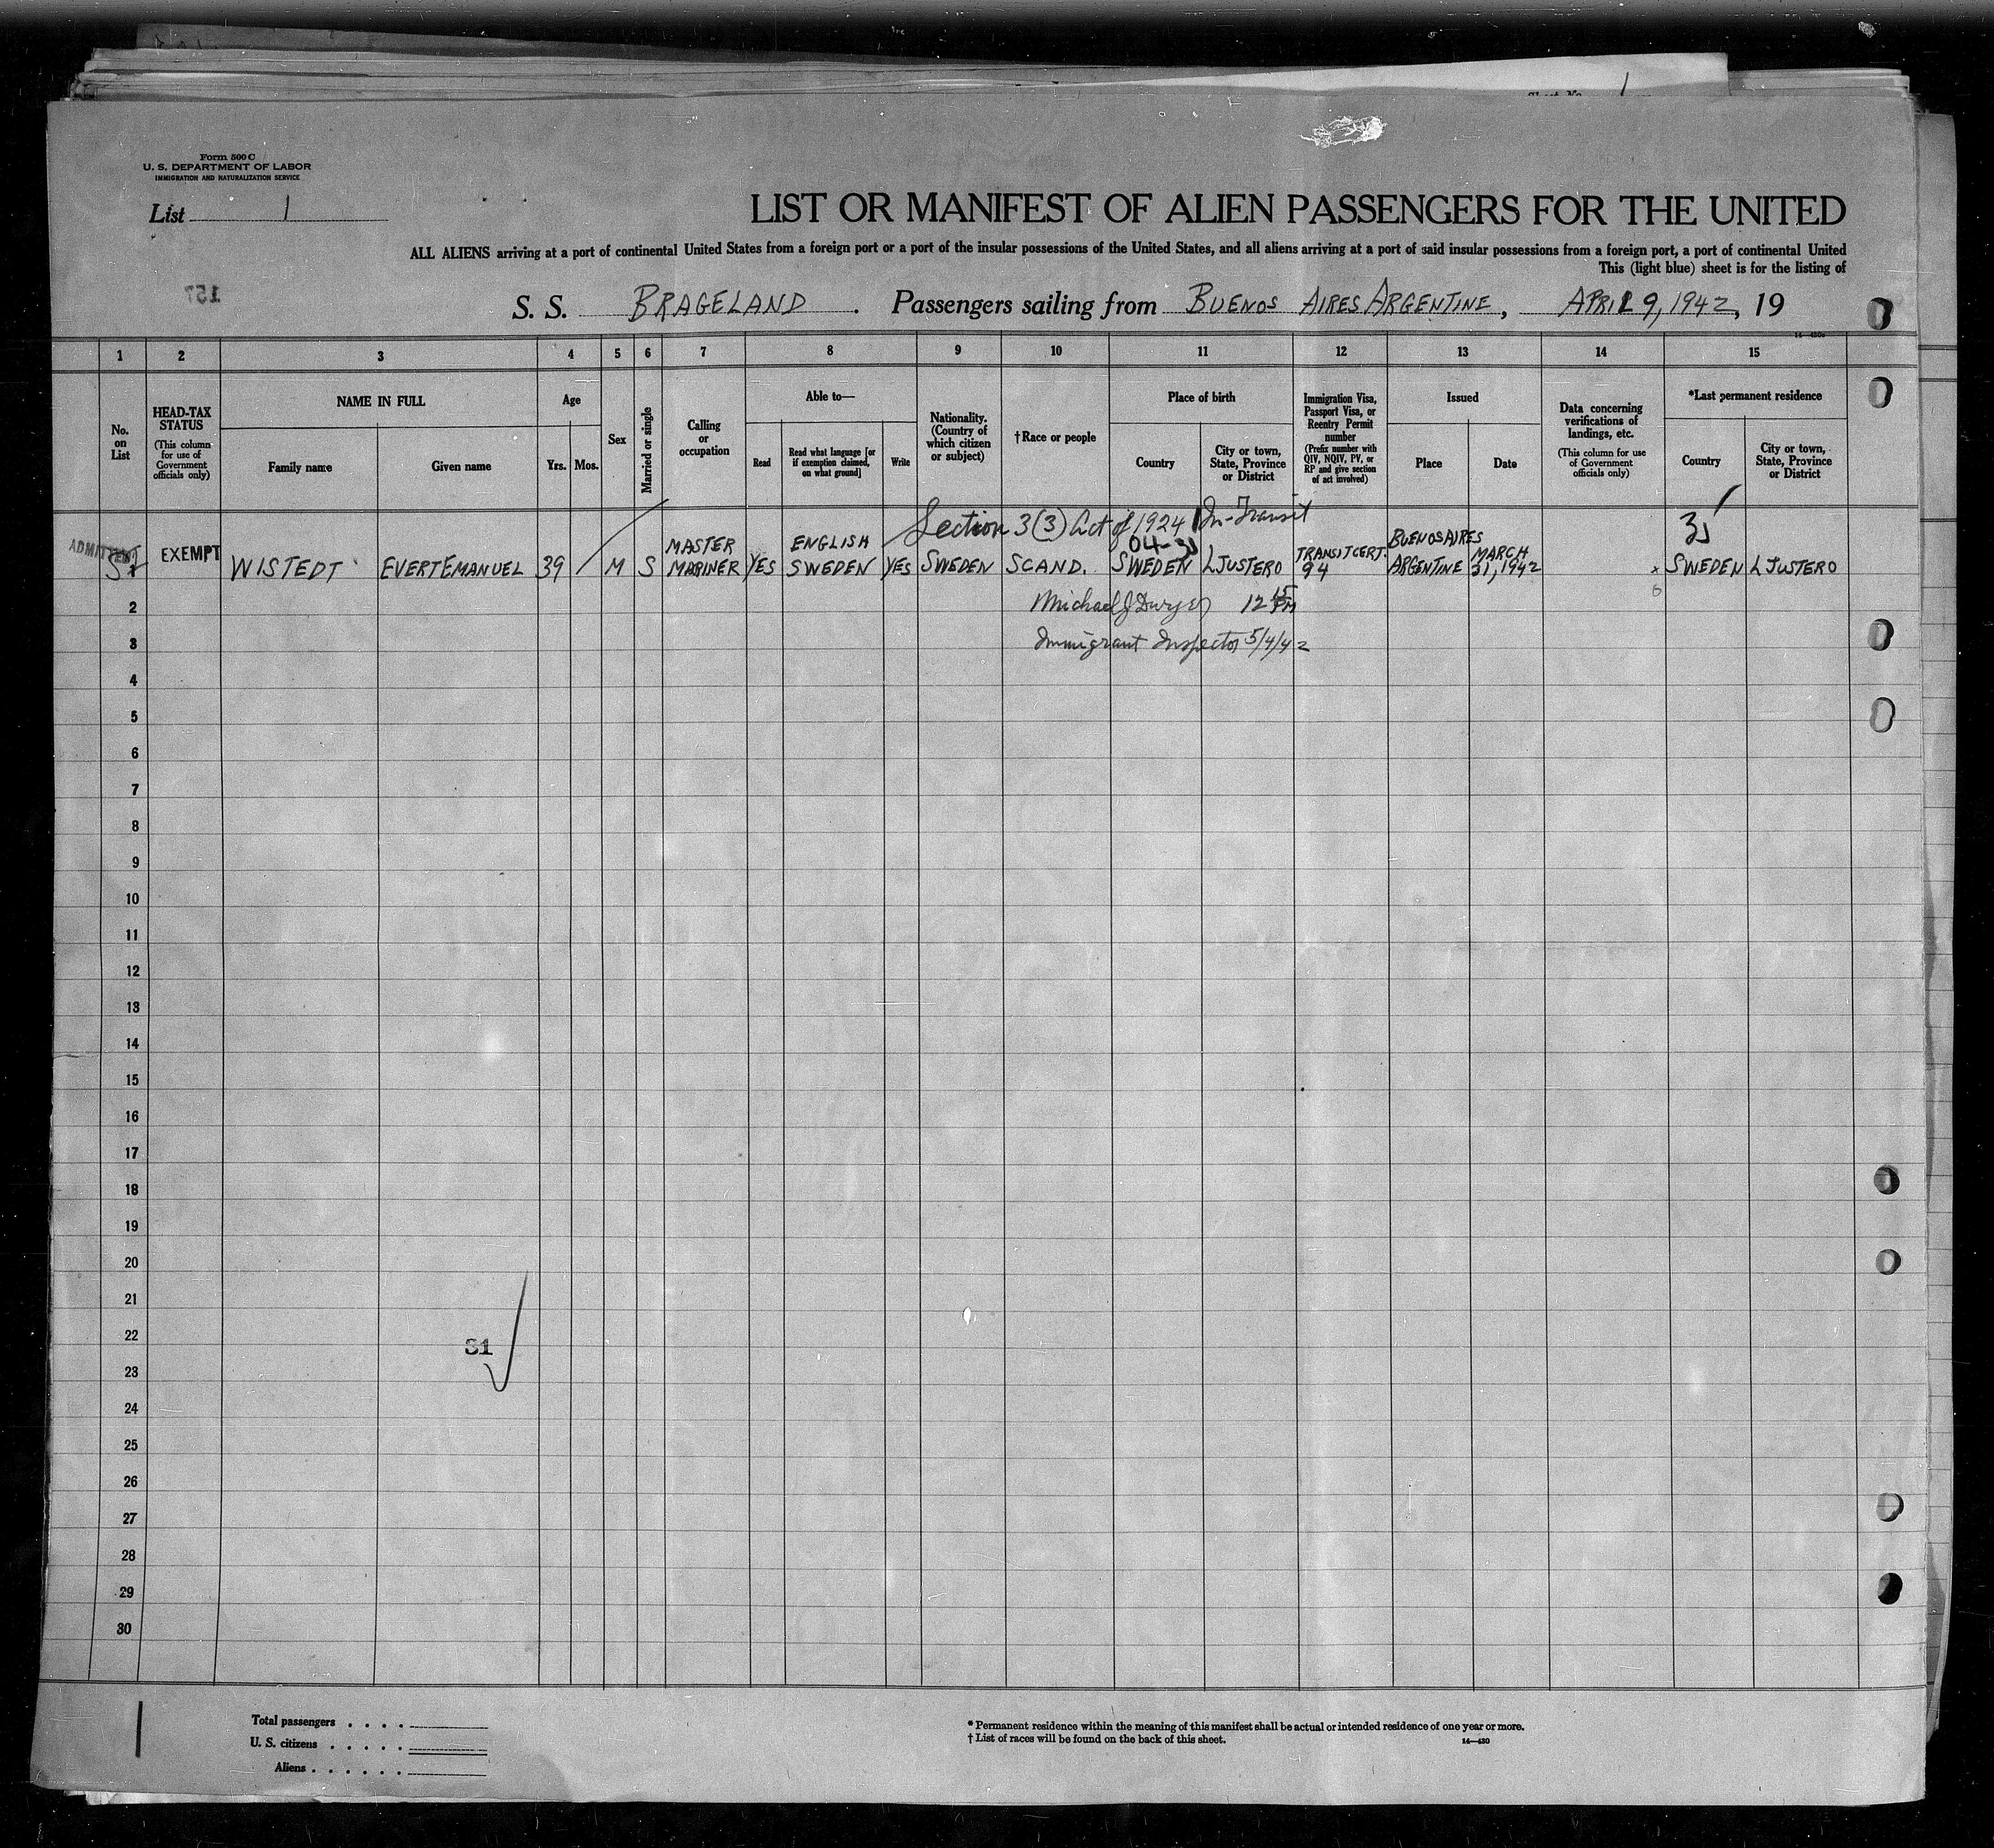 Form 500 C
U. S. DEPARTMENT OF LABOR
IMMIGRATION AND NATURALIZATION SERVICE
List 1
LIST OR MANIFEST OF ALIEN PASSENGERS FOR THE UNITED
ALL ALIENS arriving at a port of continental United States from a foreign port or a port of the insular possessions of the United States, and all aliens arriving at a port of said insular possessions from a foreign port, a port of continental United
This (light blue) sheet is for the listing of
157
S. S. BRAGELAND . Passengers sailing from BUENOS AIRES ARGENTINE, APRIL 9, 1942, 19
1 2 3 4 5 6 7 8 9 10 11 12 13 14 15
No. on List
HEAD-TAX STATUS (This column for use of Government officials only)
NAME IN FULL
Family name
Given name
Age
Yrs. Mos.
Sex
Married or single
Calling or occupation
Able to—
Read
Read what language [or if exemption claimed, on what ground]
Write
Nationality. (Country of which citizen or subject)
†Race or people
Place of birth
Country
City or town, State, Province or District
Immigration Visa, Passport Visa, or Reentry Permit number (Prefix number with QIV, NQIV, PV, or RP and give section of act involved)
Issued
Place
Date
Data concerning verifications of landings, etc. (This column for use of Government officials only)
*Last permanent residence
Country
City or town, State, Province or District
Section 3(3) Act of 1924 In-Transit
04-3
ADMITTED EXEMPT WISTEDT EVERT EMANUEL 39 M S MASTER MARINER YES ENGLISH SWEDEN YES SWEDEN SCAND. SWEDEN LJUSTERO TRANSIT CERT. 94 BUENOS AIRES ARGENTINE MARCH 31, 1942 SWEDEN LJUSTERO
2 Michael J Dwyer 12 15 PM
3 Immigrant Inspector 5/4/42
4
5
6
7
8
9
10
11
12
13
14
15
16
17
18
19
20
21
22
31
23
24
25
26
27
28
29
30
Total passengers . . . .
U. S. citizens . . . . .
Aliens . . . . . .
* Permanent residence within the meaning of this manifest shall be actual or intended residence of one year or more.
† List of races will be found on the back of this sheet.
14—430